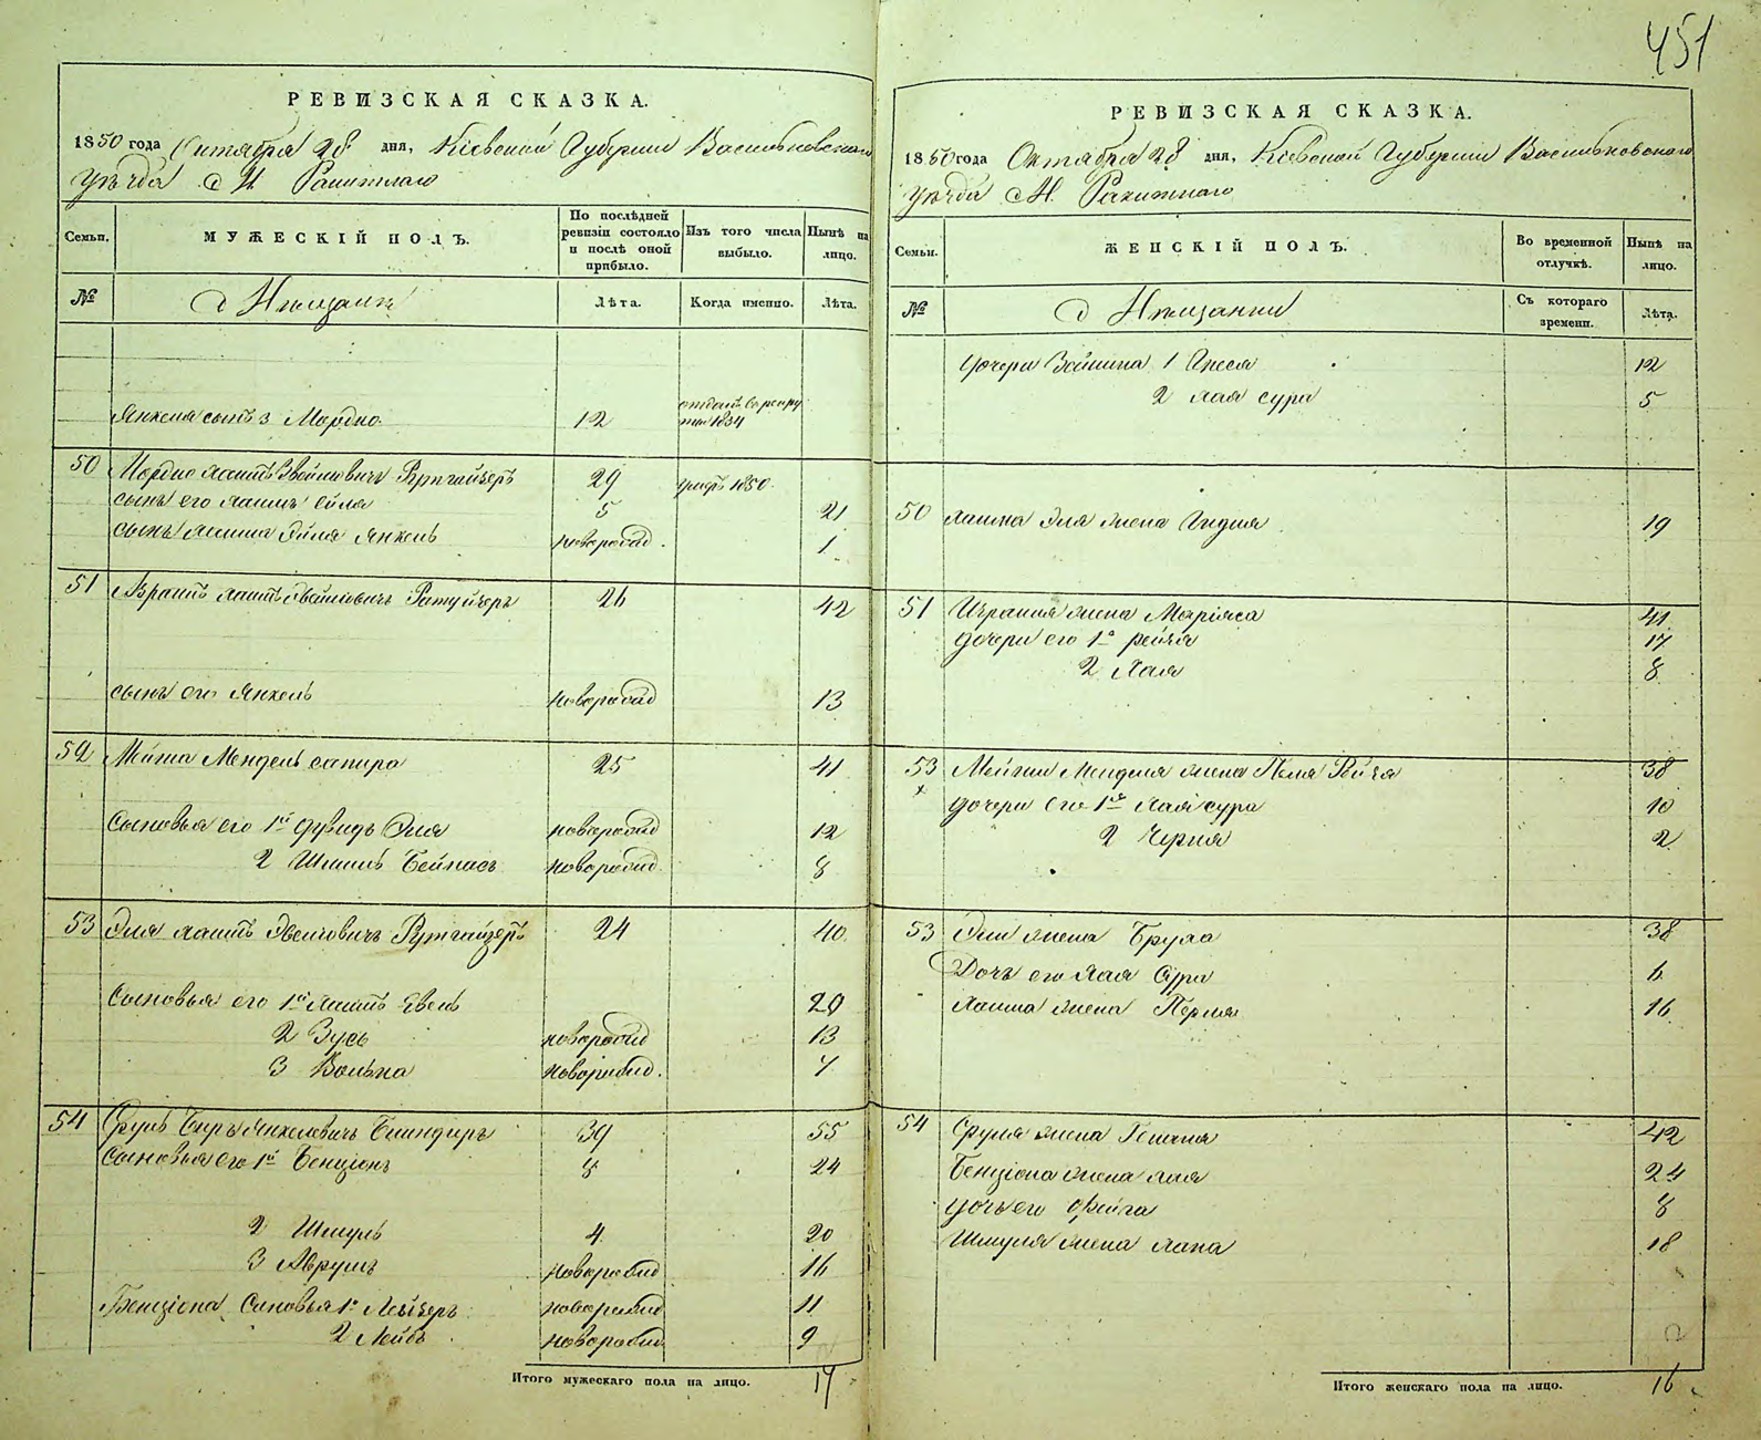 451
РЕВИЗСКАЯ СКАЗКА.
1850 года Октября 28 дня, Кіевской Губерніи Васильковскаго
Уѣзда М. Ракитнаго
Семьи. МУЖЕСКІЙ ПОЛЪ. По послѣдней ревизіи состояло и послѣ оной прибыло. Изъ того числа выбыло. Нынѣ на лицо.
№ Мѣщане Лѣта. Когда именно. Лѣта.
Янкеля сынъ 3 Мордко 12 отданъ въ рекруты 1834
50 Мордко Хаимъ 29 1850
сынъ его Хаимъ 5 21
сынъ Хаима Эля Янкель новорожд. 1
51 Хаимъ 26 42
сынъ его Янкель новорожд 13
52 Мендель сапира 25 41
Сыновья его 1й Дувидъ Эля новорожд 12
2 Шмиль Бейнись новорожд. 8
53 Эля Хаимъ 24 40
Сыновья его 1й Хаимъ 20
2 Зусь новорожд 13
3 Волька новорожд. 7
54 Сруль Беръ Янкелевичъ 39 55
Сыновья его 1й Бенціонъ 8 24
2 Шмуль 4 20
3 Аврумъ новорожд 16
Бенціона Сыновья 1й Лейзеръ новорожд 11
2 Лейбъ новорожд 9
Итого мужескаго пола на лицо. 17
РЕВИЗСКАЯ СКАЗКА.
1850 года Октября 28 дня, Кіевской Губерніи Васильковскаго
Уѣзда М. Ракитнаго
Семьи. ЖЕНСКІЙ ПОЛЪ. Во временной отлучкѣ. Нынѣ на лицо.
№ Мѣщанки Съ котораго времени. Лѣта.
дочери 1 12
2 Хая сура 5
50 Хаима Эля жена 19
51 жена Маріяса 41
дочери его 1я рейзя 17
2 Хая 8
53 Менделя жена 38
дочери его 1я Хая сура 10
2 Черня 2
53 Эли жена Бруха 38
Дочь его Хая Сура 6
Хаима жена Перля 16
54 Сруля жена 42
Бенціона жена Хая 24
дочь его Фейга 8
Шмуля жена Хана 18
Итого женскаго пола на лицо. 16